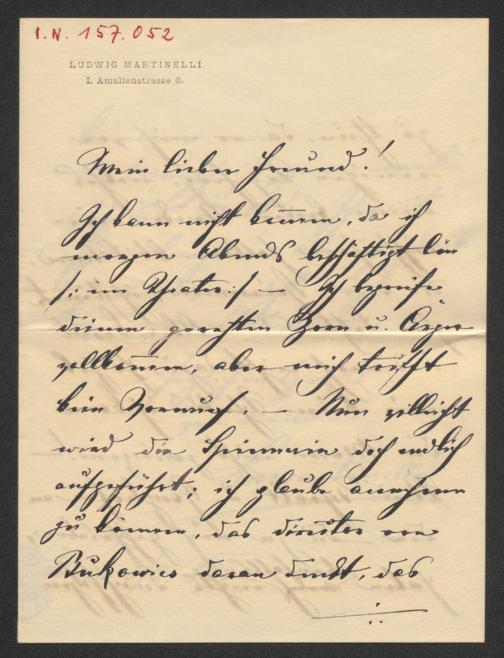 I.N. 157.052
LUDWIG MARTINELLI
I. Amalienstrasse 6.
Mein lieber Freund!
Ich kann nicht kommen, da ich
morgen Abends beschäftigt bin
/: im Theater :/ — Ich begreife
deinen gerechten Zorn u. Ärger
vollkommen, aber mich trifft
kein Vorwurf. — Nun vielleicht
wird die Spinnerin doch endlich
aufgeführt; ich glaube annehmen
zu können, das director von
Bukovics daran denkt, das